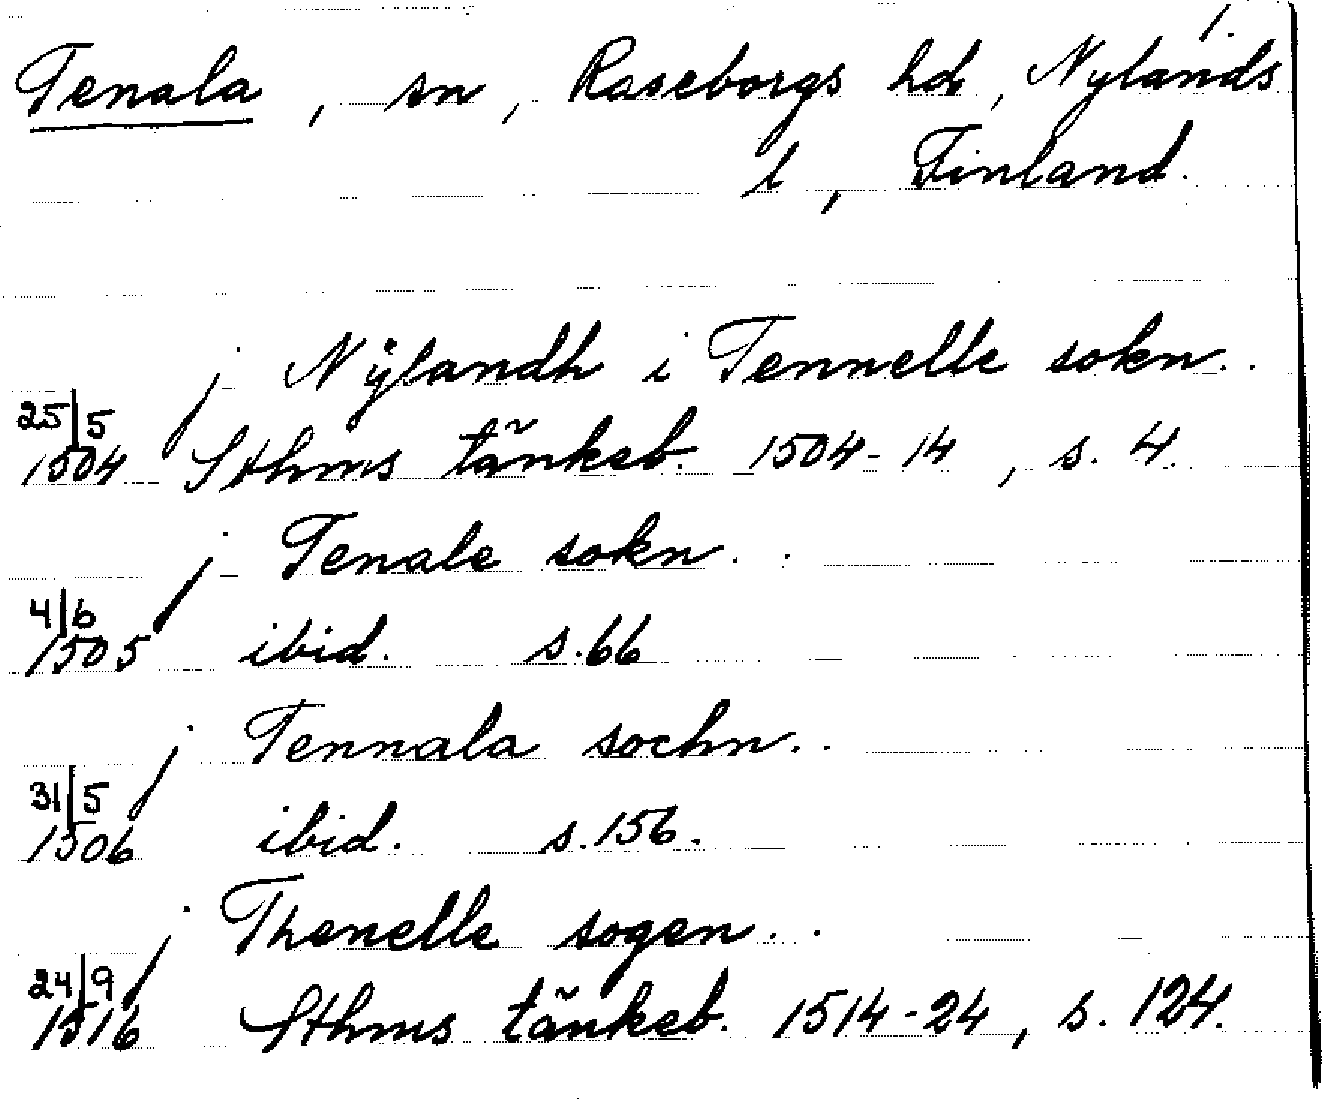 1.
Tenala, sn, Raseborgs hd, Nylands
l, Finland.
j Nÿlandh i Tennelle sokn..
25/5
1504 Sthms tänkeb. 1504-14, s. 4.
j Tenale sokn..
4/6
1505 ibid. s.66
j Tennala sochn..
31/5
1506 ibid. s.156.
j Thenelle sogen..
24/9
1516 Sthms tänkeb. 1514-24, s. 124.